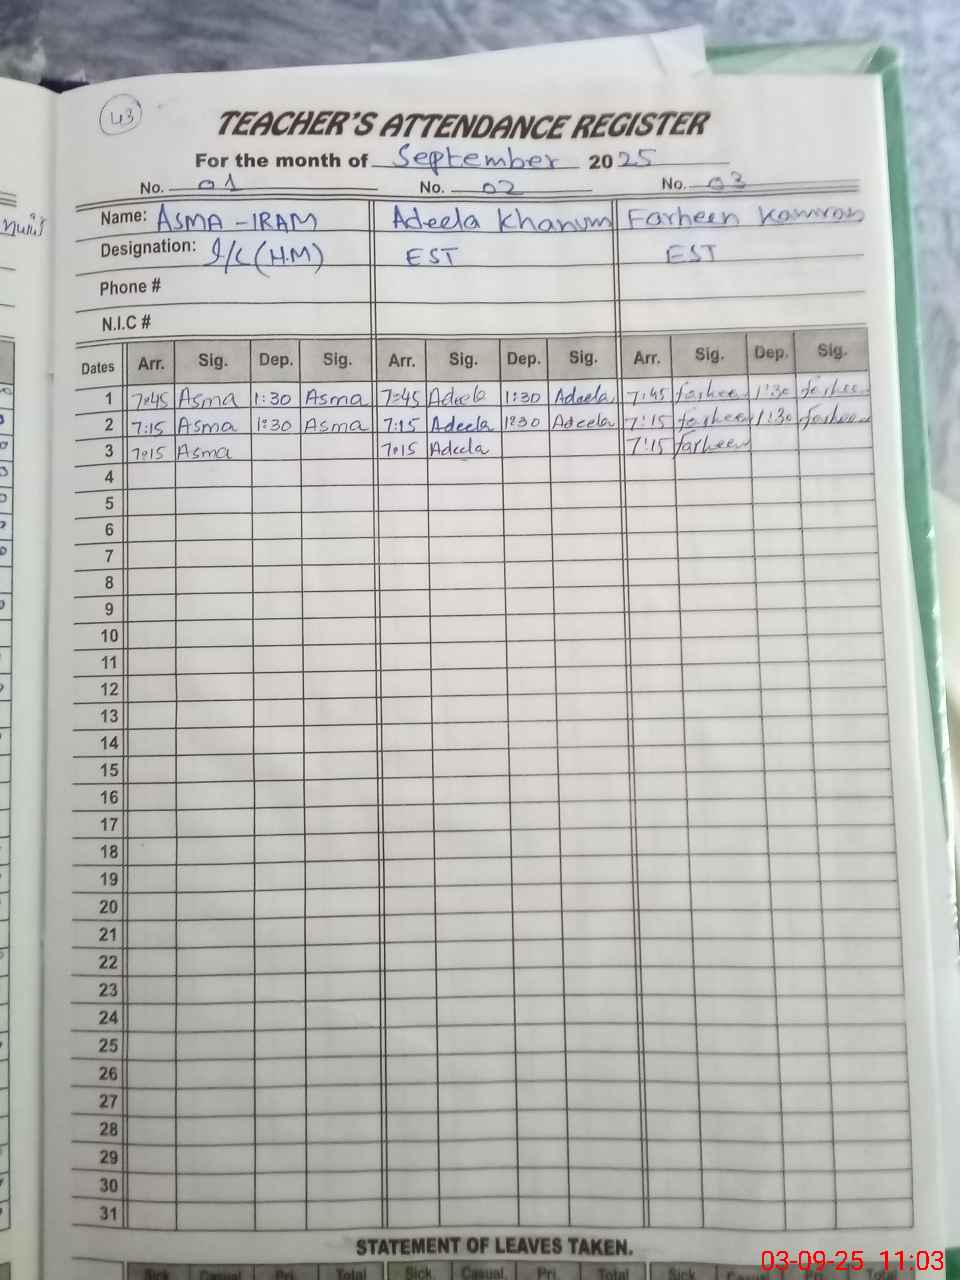 43
TEACHER'S ATTENDANCE REGISTER
For the month of September 2025
No. 01 No. 02 No. 03
Name: ASMA -IRAM Adeela Khanum Farheen Kamran
Designation: I/C (H.M) EST EST
Phone #
N.I.C #
Dates Arr. Sig. Dep. Sig. Arr. Sig. Dep. Sig. Arr. Sig. Dep. Sig.
1 7:45 Asma 1:30 Asma 7:45 Adeela 1:30 Adeela 7:45 farheen 1:30 farheen
2 7:15 Asma 1:30 Asma 7:15 Adeela 1:30 Adeela 7:15 farheen 1:30 farheen
3 7:15 Asma 7:15 Adeela 7:15 farheen
4
5
6
7
8
9
10
11
12
13
14
15
16
17
18
19
20
21
22
23
24
25
26
27
28
29
30
31
STATEMENT OF LEAVES TAKEN.
Sick Casual Pri. Total Sick. Casual. Pri Total Sick Total
03-09-25 11:03